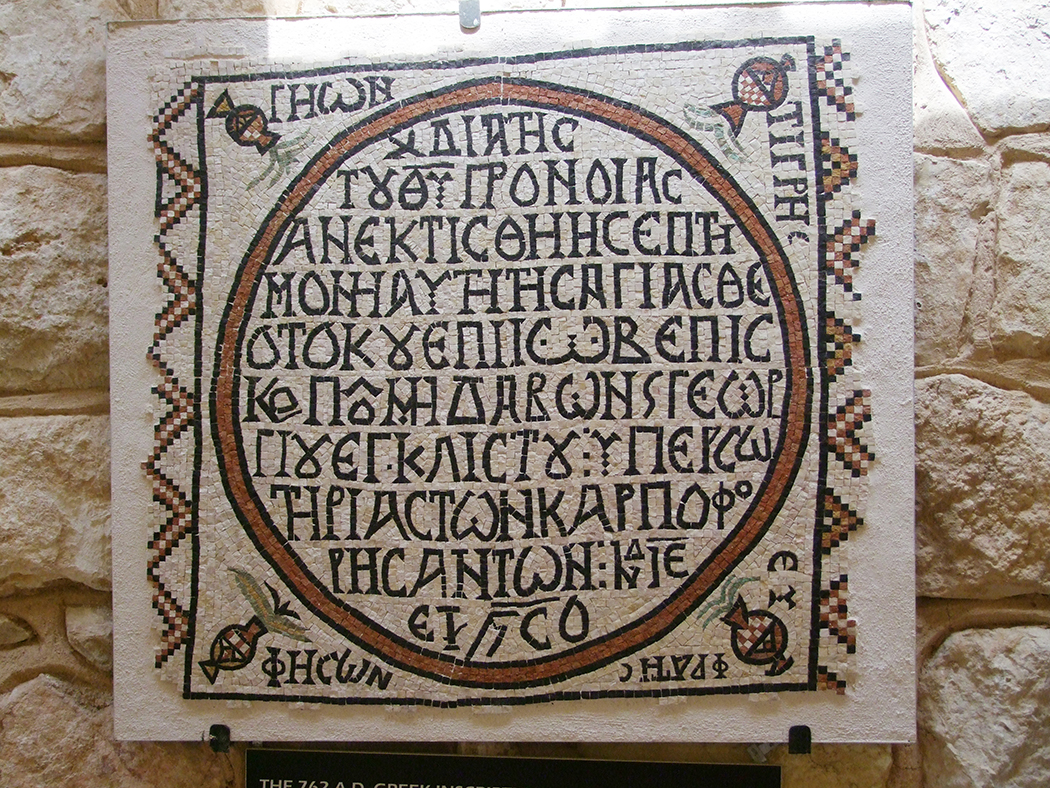 ΓΗΩΝ
ΤΙΓΡΗϹ
ΔΙΑΤΗϹ
ΤȢΘΥ ΠΡΟΝΟΙΑϹ
ΑΝΕΚΤΙϹΘΗΗϹΕΠΤΗ
ΜΟΝΗΑΥΤΗΤΗϹΑΓΙΑϹΘΕ
ΟΤΟΚȢΕΠΙΙϹ·Ω·ΒΕΠΙϹ
ΚΟΠΟΜΗΔΑΒΩΝϚΓΕΩΡ
ΓΙȢΕΓ·ΚΛΙϹΤȢ:ΥΠΕΡϹΩ
ΤΗΡΙΑϹΤΩΝΚΑΡΠΟΦΟ
ΡΗϹΑΝΤΩΝ:ΙΝΔΙΕ
ΕΤϚϹΟ
ΦΗϹΩΝ
ΕΥ
ΦΡΑΤΙϹ
THE 762 A.D. GREEK